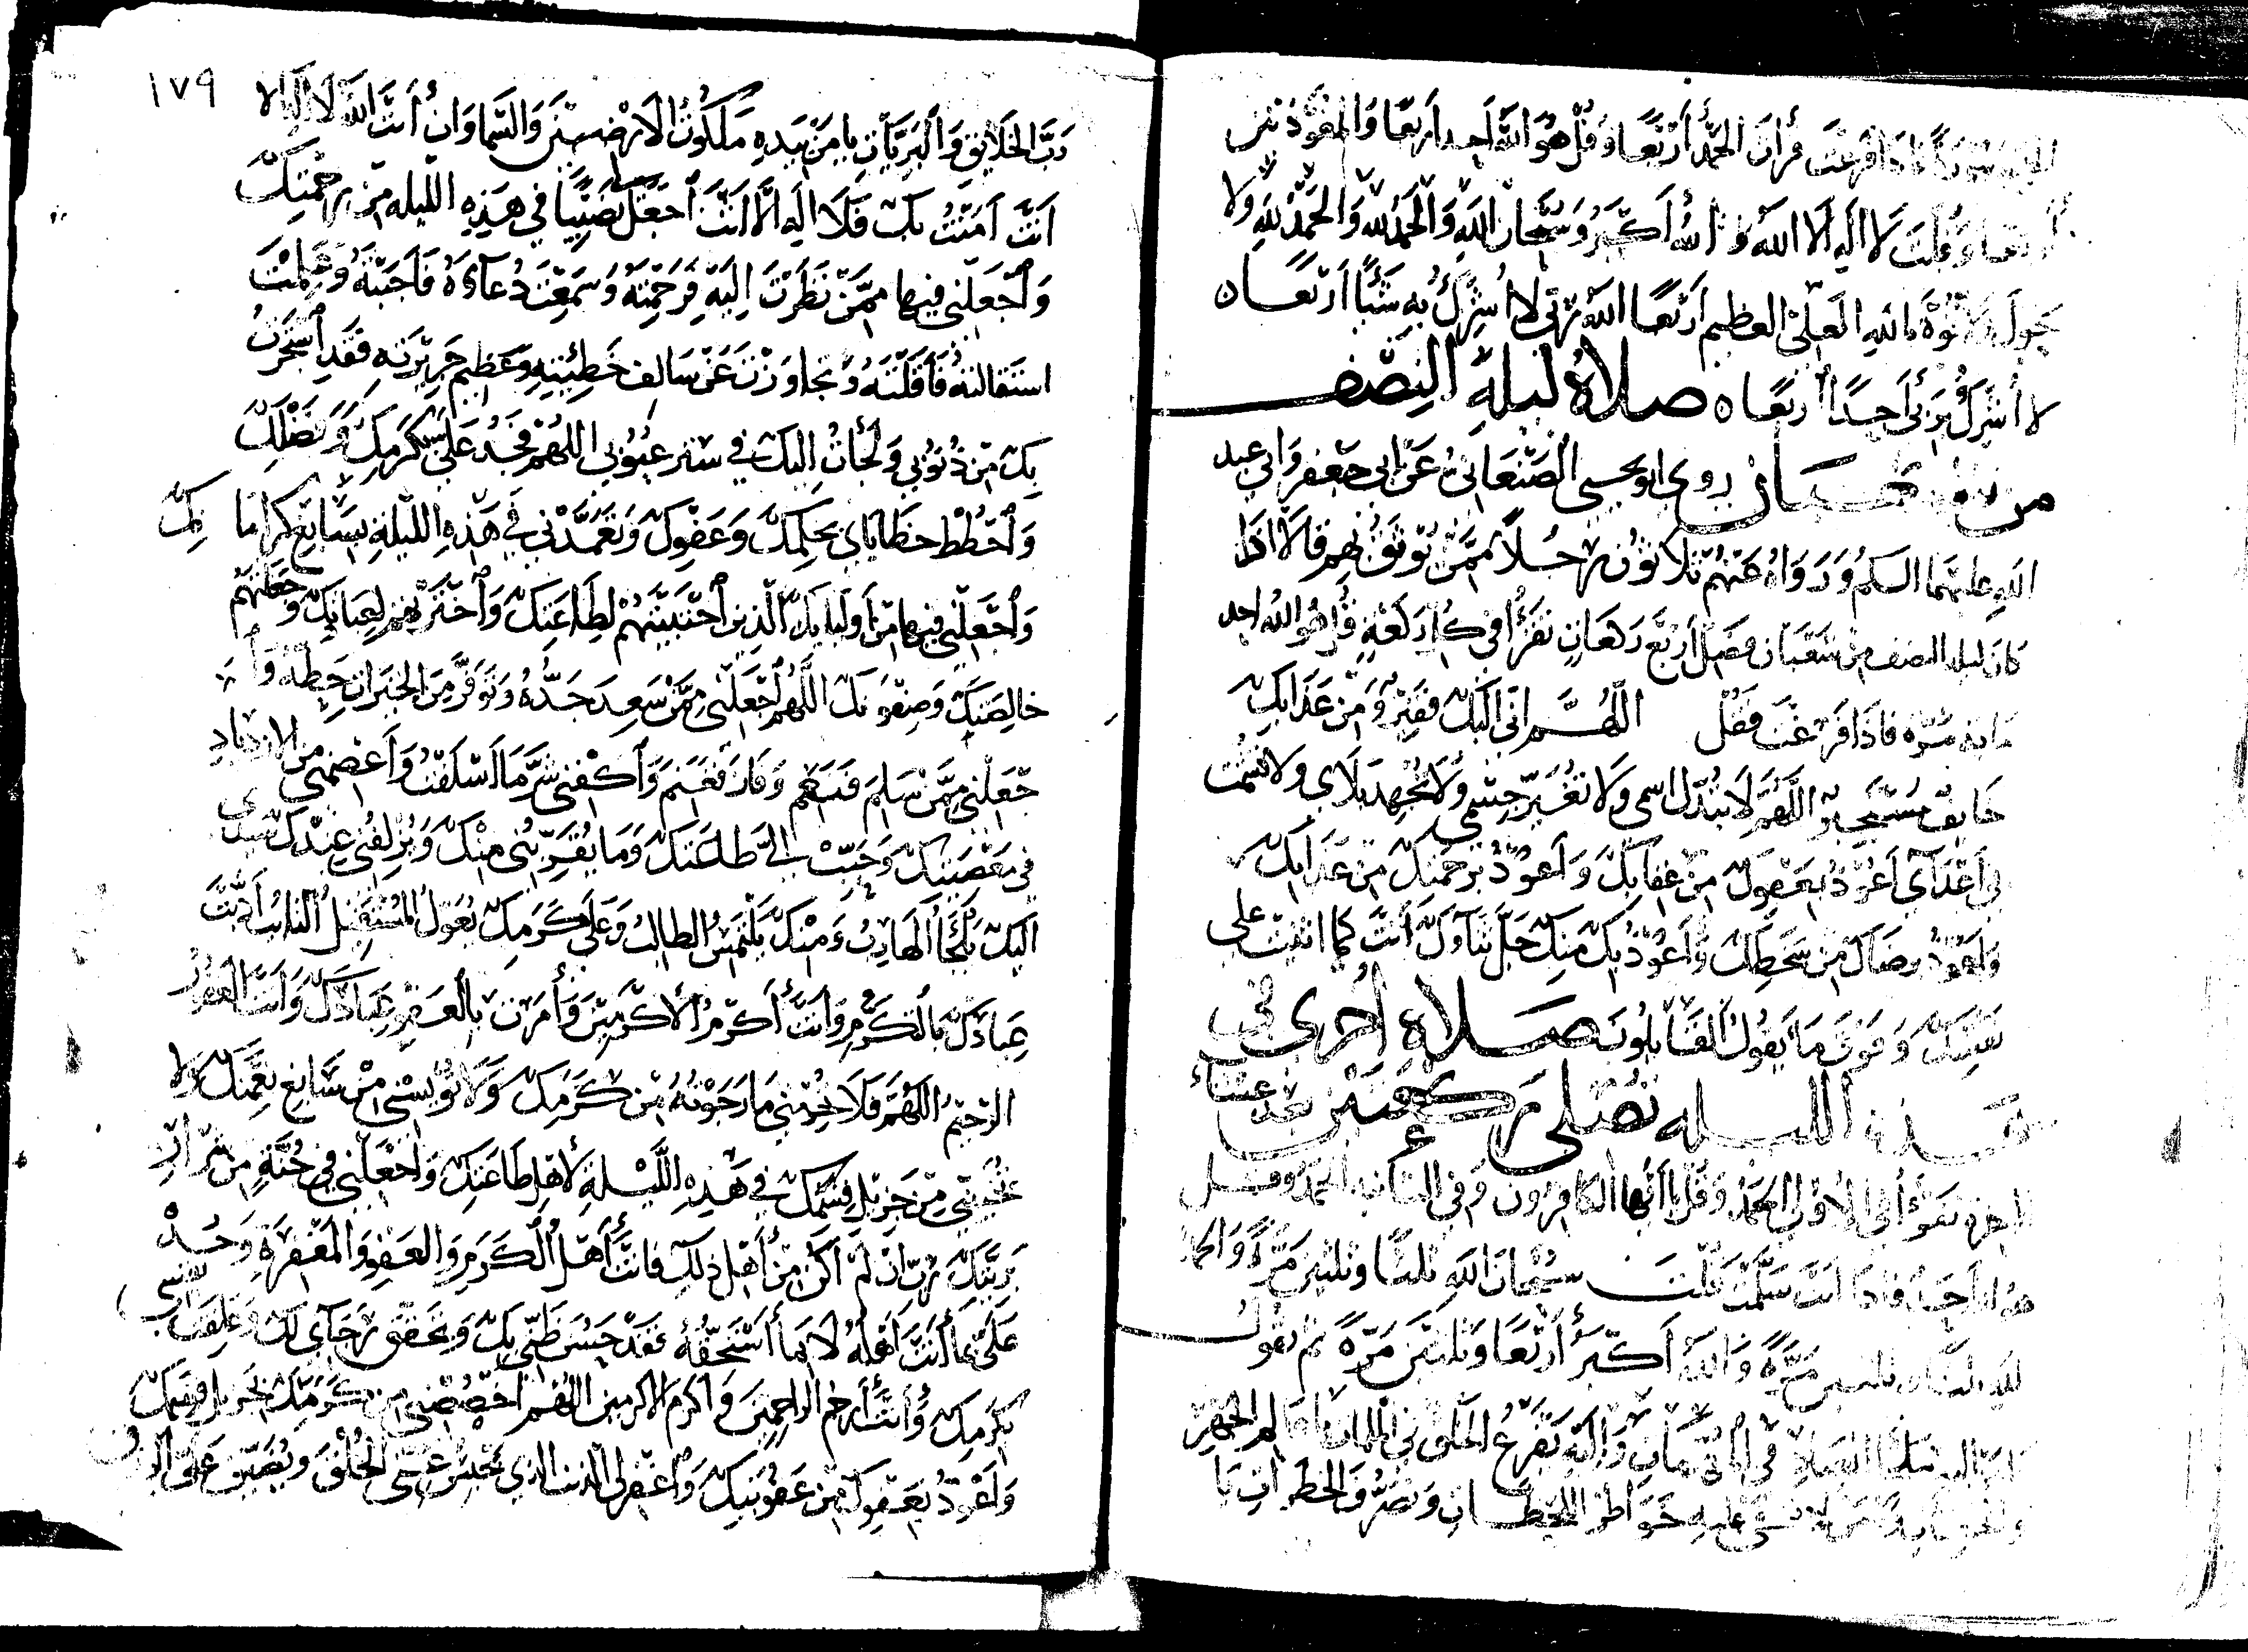 فرغت قرأت الحمد أربعا وقل هو الله أحد أربعا والمعوذتين
أربعا وقلت لا اله الا الله والله أكبر وسبحان الله والحمد لله ولا
حول ولا قوة بالله العلي العظيم أربعا الله ربي لا أشرك به شيئا أربعا
لا أشرك بربي أحدا أربعا صلاة ليلة النصف
من شعبان روى ابو يحيى الصنعاني عن ابي جعفر وابي عبد
الله عليهما السلم ورواه عنهم ثلاثون رجلا ممن يوثق بهم قالا اذا
كان ليلة النصف من شعبان فصل أربع ركعات تقرأ في كل ركعة قل هو الله احد
مائة مرة فاذا فرغت فقل اللهم اني اليك فقير ومن عذابك
خايف مستجير اللهم لا تبدل اسمي ولا تغير جسمي ولا تجهد بلاي ولا تشمت
بي أعدآي أعوذ بعفوك من عقابك وأعوذ برحمتك من عذابك
وأعوذ برضاك من سخطك وأعوذ بك منك جل ثناؤك أنت كما اثنيت على
نفسك وفوق ما يقول القائلون صلاة أخرى في
هذه الليلة تصلي ركعتين بعد عشاء
الاخرة تقرأ في الاولى الحمد وقل يا أيها الكافرون وفي الثانية الحمد وقل
هو الله أحد فاذا انت سلمت قلت سبحان الله ثلثا وثلثين مرة والحمد
لله ثلثا وثلثين مرة والله أكبر أربعا وثلثين مرة ثم تقول
يا من اليه ملجأ العباد في المهمات واليه يفزع الخلق في الملمات يا عالم الجهر
والخفيات يا من لا تخفى عليه خواطر وتصرف الخطرات يا
١٧٩
رب الخلايق والبريات يا من بيده ملكوت الارضين والسماوات أنت الله لا اله الا
انت أمنت بك فلا اله الا أنت اجعل نصيبا في هذه الليله من رحمتك
وأجعلني فيها ممن نظرت اليه فرحمته وسمعت دعآءه فأجبته وعلمت
استقالته فأقلته وتجاوزت عن سالف خطيئته وعظيم جريرته فقد أستجرت
بك من ذنوبي ولجأت اليك في ستر عيوبي اللهم فجد علي بكرمك وفضلك
وأحطط خطاياي بحلمك وعفوك وتغمدني في هذه الليلة بسابغ كرامتك
وأجعلني فيها من أوليايك الذين أجتبيتهم لطاعتك وأخترتهم لعبادتك وجعلتهم
خالصتك وصفوتك اللهم أجعلني ممن سعد جده وتوفر من الخيرات حظه وا
جعلني ممن سلم فنعم وفاز فغنم وأكفني شر ما أسلفت وأعصمني من الازدياد
في معصيتك وحبب الي طاعتك وما يقربني منك ويزلفني عندك سيدي
اليك يلجأ الهارب ومنك يلتمس الطالب وعلى كرمك يعول المستقيل التائب أدبت
عبادك بالتكرم وأنت أكرم الأكرمين وأمرت بالعفو عبادك وأنت الغفور
الرحيم اللهم فلا تحرمني ما رجوته من كرمك ولا تؤيسني من سابغ نعمتك ولا
تخيبني من جزيل قسمك في هذه الليلة لأهل طاعتك وأجعلني في جنة من شرار
بريتك رب ان لم أكن من أهل ذلك فانت أهل الكرم والعفو والمغفرة وجد
علي بما أنت أهله لا بما أستحقه فقد حسن ظني بك وتحقق رجآي لك وعلقت نفسي
بكرمك وأنت أرحم الراحمين وأكرم الاكرمين اللهم اخصصني من كرمك بجزيل قسمك
وأعوذ بعفوك من عقوبتك وأغفر لي الذنب الذي يحبس عني الخلق ويضيق علي الرزق